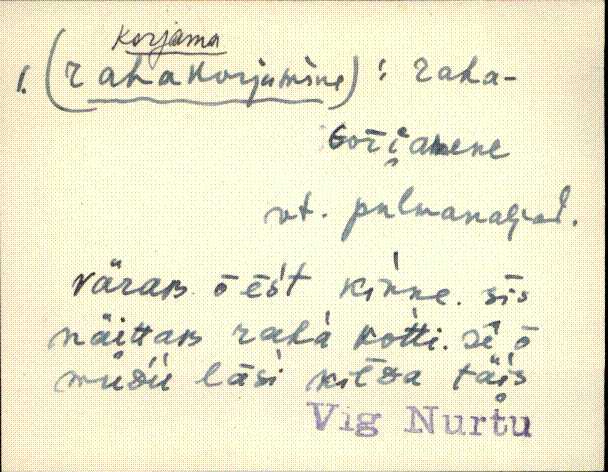 korjama
1. (rahakorjumine) : raha-
Gorjamene
vt. pulmanaljad.
väraʙ ō ēśt kinne. sīs
näittaʙ rahà kotti. sē ō
müd́ü lāsì kilʙa täis
Vig Nurtu